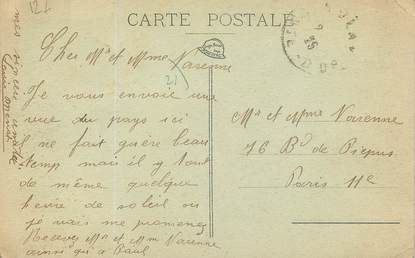 CARTE POSTALE
Cher Mr et Mme Varenne
Je vous envoie une
vue du pays ici
il ne fait guère beau
temp mais il y tout
de même quelque
heure de soleil ou
je vais me promener
Recevez Mr et Mm Varenne
ainsi qu'a Paul
mes sincère
Mr et Mme Varenne
76 Bd de Picpus
Paris 11e